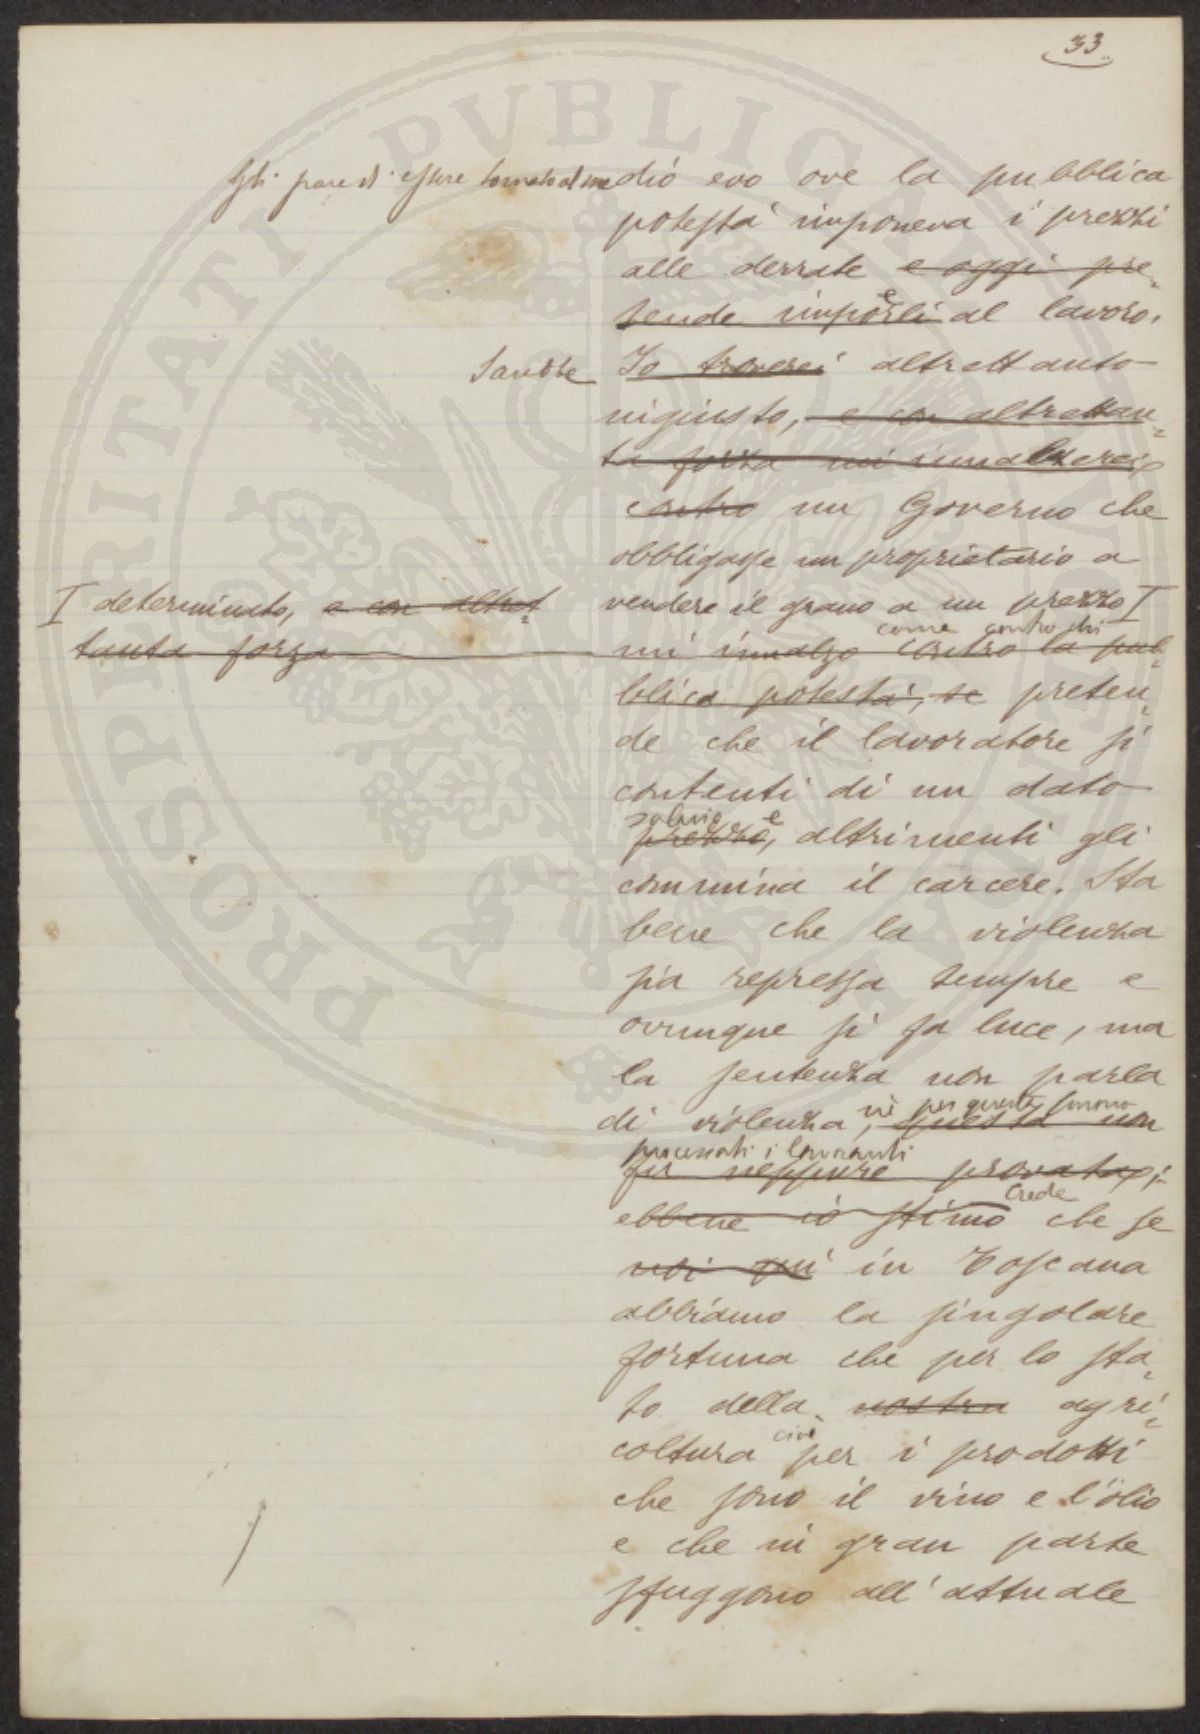 33
Gli pare di essere tornato al medio evo ove la pubblica
potestà imponeva i prezzi
alle derrate e oggi pre-
tende imporli e al lavoro.
Sarebbe Io troverei altrettanto
ingiusto, e con altrettan-
ta forza mi innalzerei
contro un Governo che
obbligasse un proprietario a
I determinato, e con altret-
tanta forza
vendere il grano a un prezzo I
come contro chi
mi innalzo contro la pub-
blica potestà, se preten-
de che il lavoratore si
contenti di un dato
salario e
prezzo, altrimenti gli
commina il carcere. Sta
bene che la violenza
sia repressa sempre e
ovunque si fa luce, ma
la sentenza non parla
nè per questa furono
di violenza, questa non
processati i lavoranti
fu neppure provata;
Crede
ebbene io stimo che se
noi qui in Toscana
abbiamo la singolare
fortuna che per lo sta-
to della nostra agri-
cioè
coltura per i prodotti
che sono il vino e l'olio
e che in gran parte
sfuggono all'attuale
PROSPERITATI PUBLICAE AUGENDAE